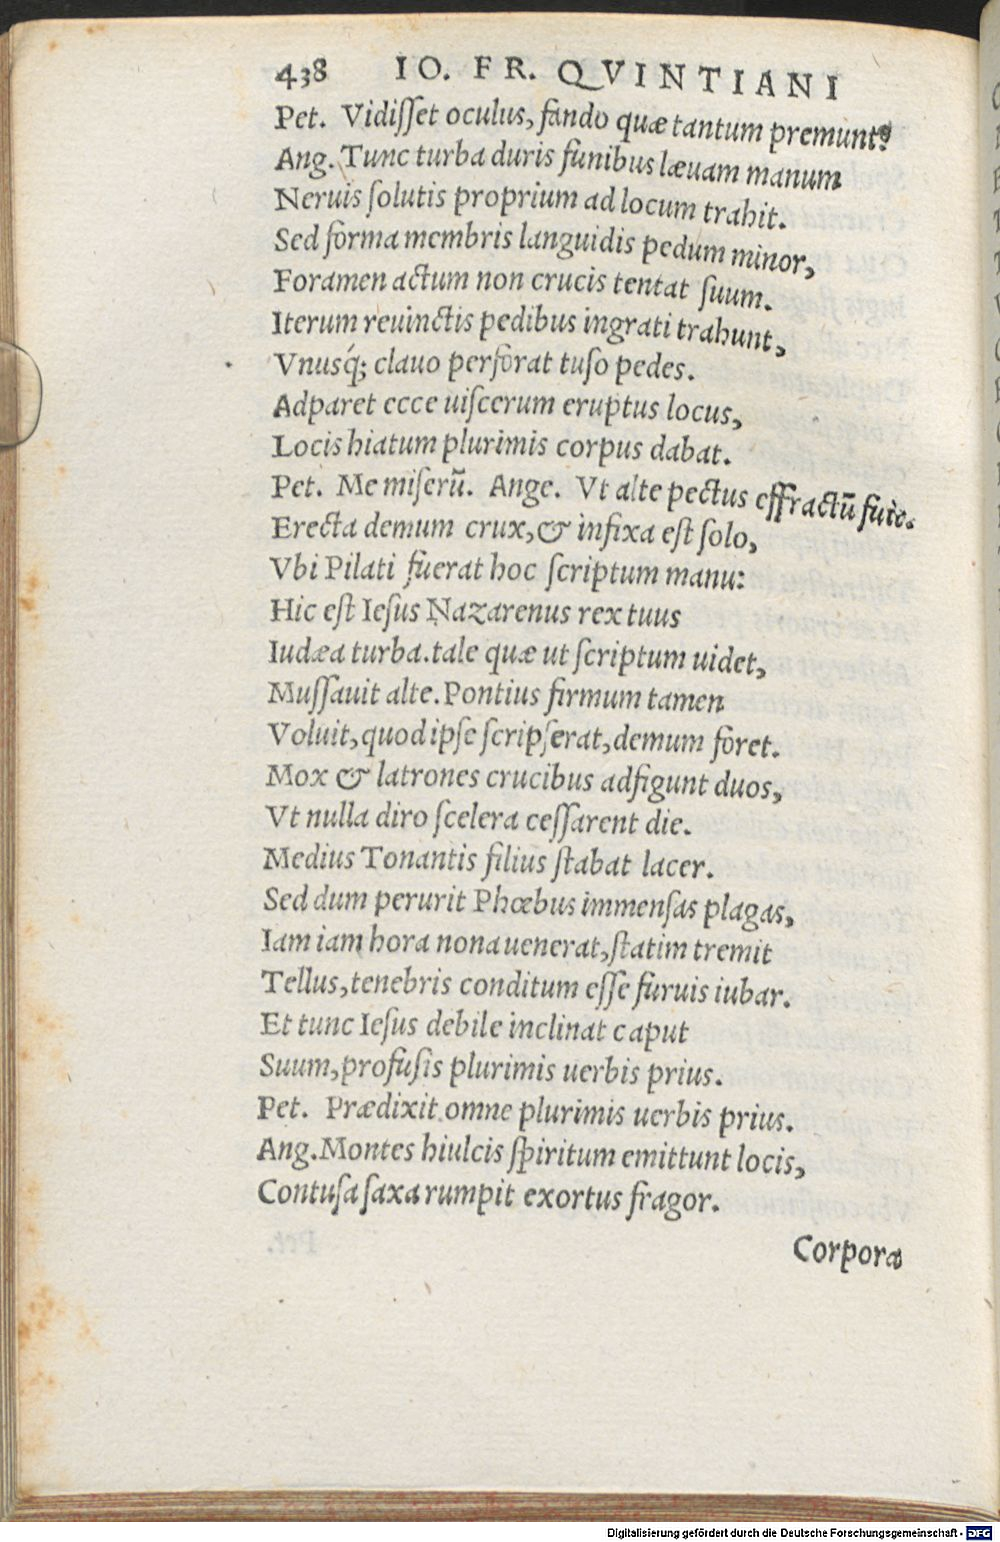 438 IO. FR. QVINTIANI
Pet. Vidiſſet oculus, fando quæ tantum premunt?
Ang. Tunc turba duris funibus læuam manum
Neruis ſolutis proprium ad locum trahit.
Sed forma membris languidis pedum minor,
Foramen actum non crucis tentat ſuum.
Iterum reuinctis pedibus ingrati trahunt,
Vnusq́; clauo perforat tuſo pedes.
Adparet ecce uiſcerum eruptus locus,
Locis hiatum plurimis corpus dabat.
Pet. Me miſerū. Ange. Vt alte pectus effractū fuit.
Erecta demum crux, & infixa eſt ſolo,
Vbi Pilati fuerat hoc ſcriptum manu:
Hic eſt Ieſus Nazarenus rex tuus
Iudæa turba. tale quæ ut ſcriptum uidet,
Muſſauit alte. Pontius firmum tamen
Voluit, quod ipſe ſcripſerat, demum foret.
Mox & latrones crucibus adfigunt duos,
Vt nulla diro ſcelera ceſſarent die.
Medius Tonantis filius ſtabat lacer.
Sed dum perurit Phœbus immenſas plagas,
Iam iam hora nona uenerat, ſtatim tremit
Tellus, tenebris conditum eſſe furuis iubar.
Et tunc Ieſus debile inclinat caput
Suum, profuſis plurimis uerbis prius.
Pet. Prædixit omne plurimis uerbis prius.
Ang. Montes hiulcis ſpiritum emittunt locis,
Contuſa ſaxa rumpit exortus fragor.
Corpora
Digitalisierung gefördert durch die Deutsche Forschungsgemeinschaft - DFG